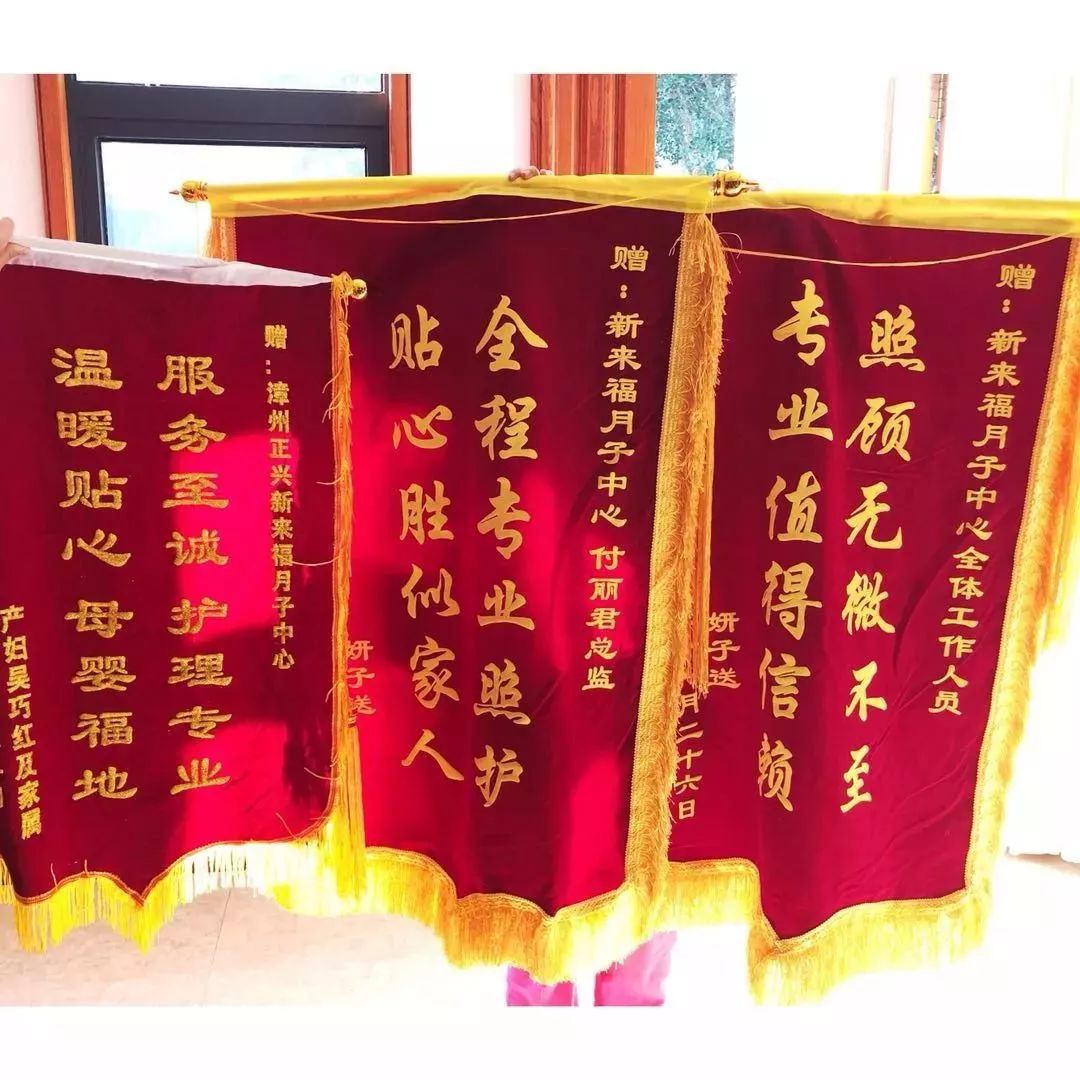 赠：漳州正兴新来福月子中心
服务至诚护理专业
温暖贴心母婴福地
产妇吴巧红及家属
赠：新来福月子中心 付丽君总监
全程专业照护
贴心胜似家人
妍子送
赠：新来福月子中心全体工作人员
照顾无微不至
专业值得信赖
妍子送
月二十六日